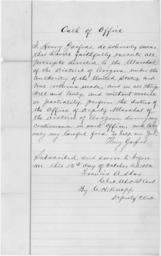 Oath of Office
I, Henry Garfias do solemnly swear
that I will faithfully execute all
precepts directed to the Marshal
of the District of Arizona under the
authority of the United States and
true returns make, and in all things
well and truly and without malice
or partiality perform the duties of
the Office of Deputy Marshal of
the District of Arizona during my
continuance in said Office, and take
only my lawful fees. So help me God.
Henry Garfias
Subscribed and sworn to before
me this 12th day of October
Deputy Clerk